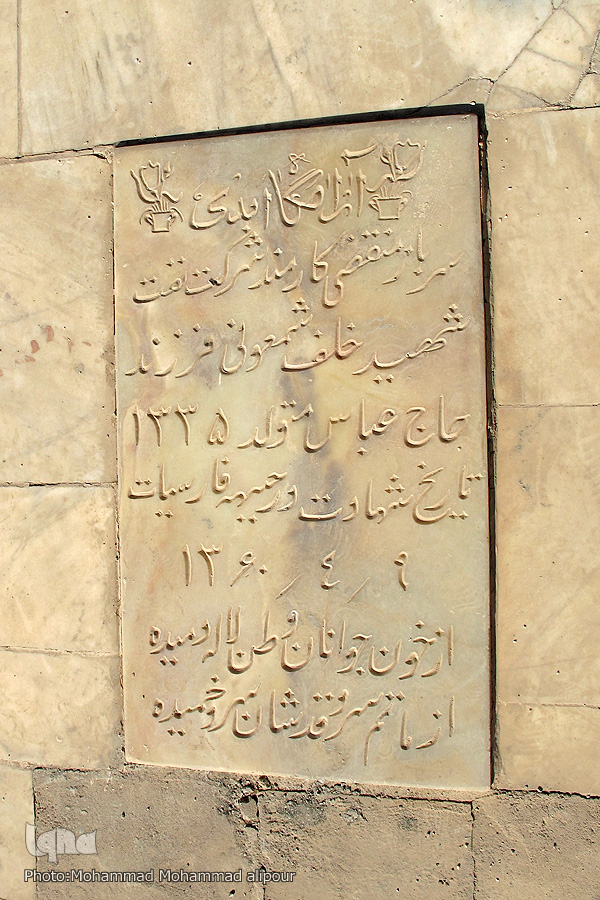 آرامگاه ابدی
سرباز منقضی کارمند شرکت نفت
شهید خلف شمعونی فرزند
حاج عباس متولد ۱۳۳۵
تاریخ شهادت در جبهه فارسیات
۹ ر ٤ ر ۱۳۶۰
از خون جوانان وطن لاله دمیده
از ماتم سرو قدشان سرو خمیده
iqna
Photo:Mohammad Mohammad alipour